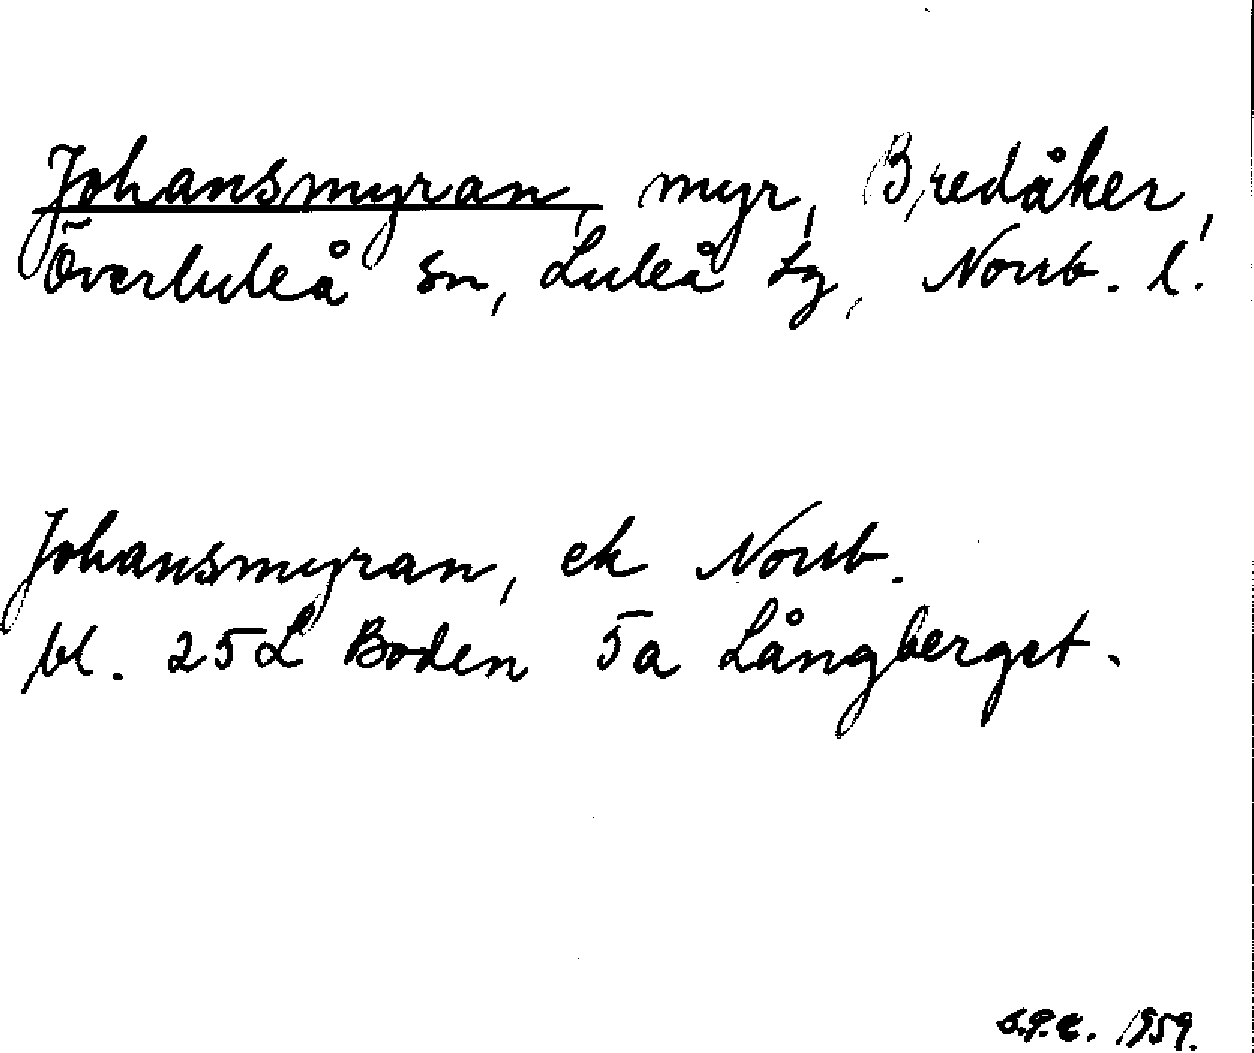 Johansmyran, myr, Bredåker,
Överluleå sn, Luleå tg, Norrb. l.
Johansmyran, ek Norrb.
bl. 25L Boden 5a Långberget.
1959.